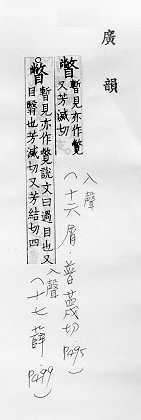 廣韻
瞥
暫見亦作覕
又芳滅切
入聲
(十六屑・普蔑切 P495)
瞥
暫見亦作覕說文曰過目也又
目翳也芳滅切又芳結切四
入聲
(十七薛 P499)